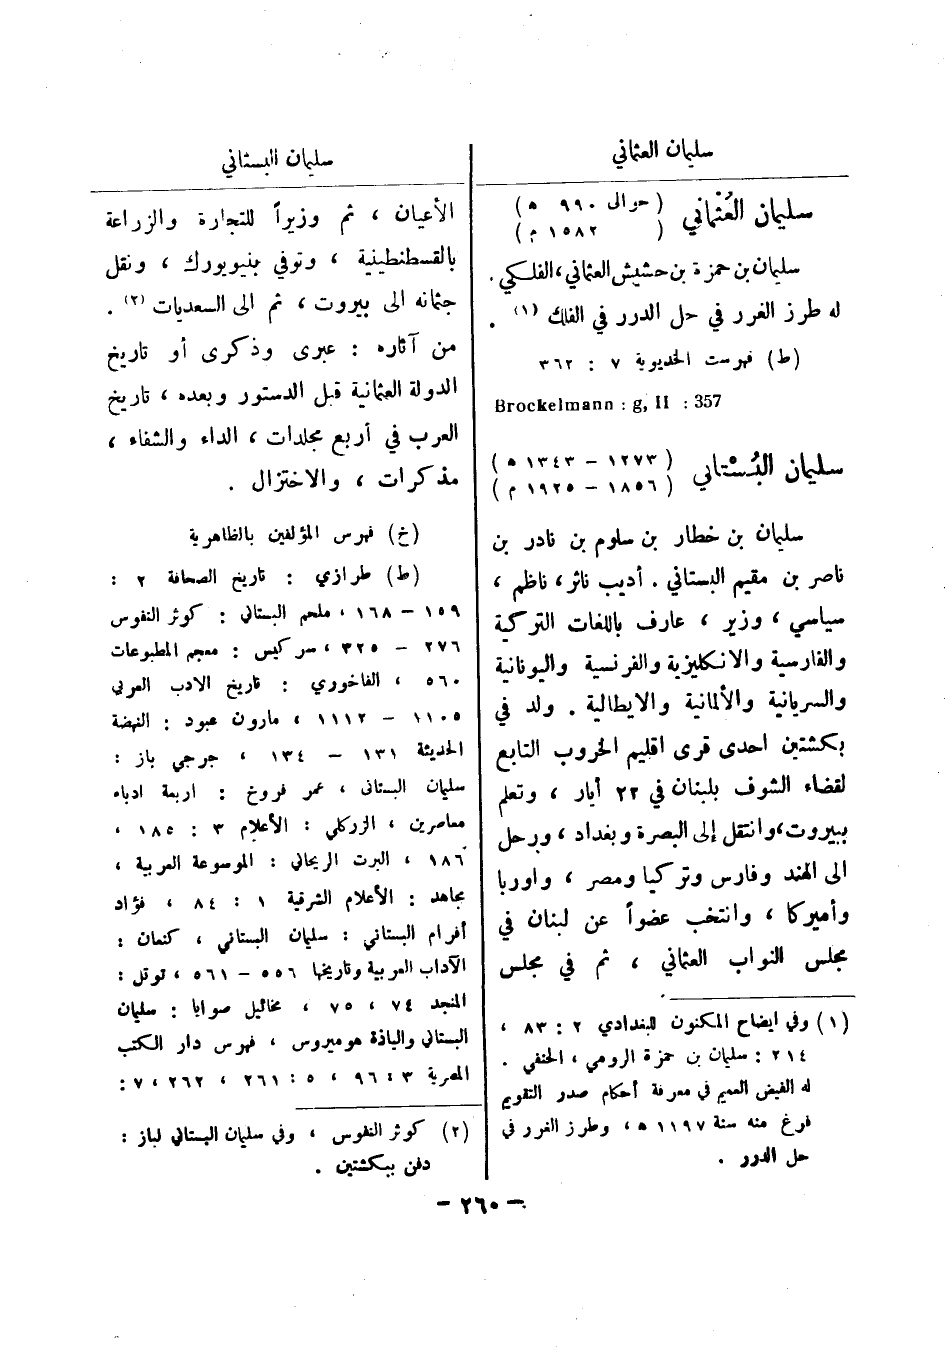 سليمان العثماني
سليمان العُثماني (حوالى ٩٩٠ ه)
( ١٥٨٢ م)
سليمان بن حمزة بن حشيش العثماني، الفلكي .
له طرز الغرر في حل الدرر في الفلك (١) .
(ط) فهرست الخديوية ٧ : ٣٦٢
Brockelmann : g, II : 357
سليمان البُسْتاني (١٢٧٣ – ١٣٤٣ ه)
(١٨٥٦ – ١٩٢٥ م)
سليمان بن خطار بن سلوم بن نادر بن
ناصر بن مقيم البستاني . أديب ناثر، ناظم ،
سياسي ، وزير ، عارف باللغات التركية
والفارسية والانكليزية والفرنسية واليونانية
والسريانية والألمانية والايطالية . ولد في
بكشتين احدى قرى اقليم الخروب التابع
لقضاء الشوف بلبنان في ٢٢ أيار ، وتعلم
ببيروت، وانتقل إلى البصرة وبغداد ، ورحل
الى الهند وفارس وتركيا ومصر ، واوربا
وأميركا ، وانتخب عضواً عن لبنان في
مجلس النواب العثماني ، ثم في مجلس
(١) وفي ايضاح المكنون للبغدادي ٢ : ٨٣ ،
٢١٤ : سليمان بن حمزة الرومي ، الحنفي .
له الفيض العميم في معرفة أحكام صدر التقويم
فرغ منه سنة ١١٩٧ ه ، وطرز الغرر في
حل الدرر .
سليمان البستاني
الأعيان ، ثم وزيراً للتجارة والزراعة
بالقسطنطينية ، وتوفي بنيويورك ، ونقل
جثمانه الى بيروت ، ثم الى السعديات (٢) .
من آثاره : عبرى وذكرى أو تاريخ
الدولة العثمانية قبل الدستور وبعده ، تاريخ
العرب في أربع مجلدات ، الداء والشفاء ،
مذكرات ، والاختزال .
(خ) فهرس المؤلفين بالظاهرية
(ط) طرازي : تاريخ الصحافة ٢ :
١٥٩ – ١٦٨ ، ملحم البستاني : كوثر النفوس
٢٧٦ – ٣٢٥ ، سركيس : معجم المطبوعات
٥٦٠ ، الفاخوري : تاريخ الادب العربي
١١٠٥ – ١١١٢ ، مارون عبود : النهضة
الحديثة ١٣١ – ١٣٤ ، جرجي باز :
سليمان البستاني ، عمر فروخ : اربعة ادباء
معاصرين ، الزركلي : الأعلام ٣ : ١٨٥ ،
١٨٦ ، البرت الريحاني : الموسوعة العربية ،
مجاهد : الأعلام الشرقية ١ : ٨٤ ، فؤاد
أفرام البستاني : سليمان البستاني ، كنعان :
الآداب العربية وتاريخها ٥٥٦ – ٥٦١ ، توتل :
المنجد ٧٤ ، ٧٥ ، مخائيل صوايا : سليمان
البستاني والياذة هوميروس ، فهرس دار الكتب
المصرية ٣ : ٩٦ ، ٥ : ٢٦١ ، ٢٦٢ ، ٧ :
(٢) كوثر النفوس ، وفي سليمان البستاني لباز :
دفن ببكشتين .
– ٢٦٠ –